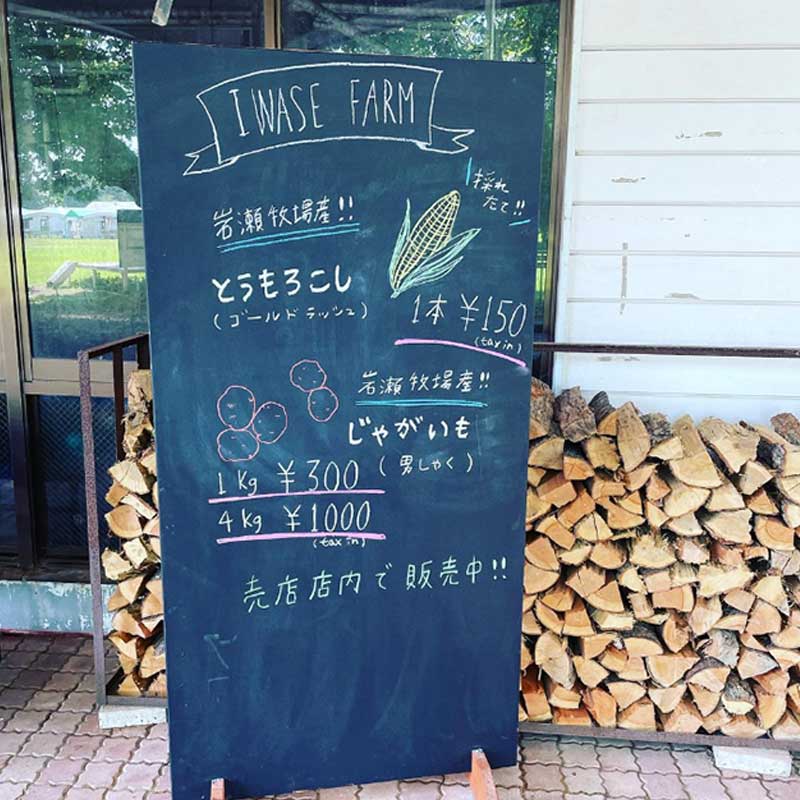 IWASE FARM
採れ
たて!!
岩瀬牧場産!!
とうもろこし
(ゴールドラッシュ)
1本 ¥150
(tax in)
岩瀬牧場産!!
じゃがいも
(男しゃく)
1kg ¥300
4kg ¥1000
(tax in)
売店店内で販売中!!